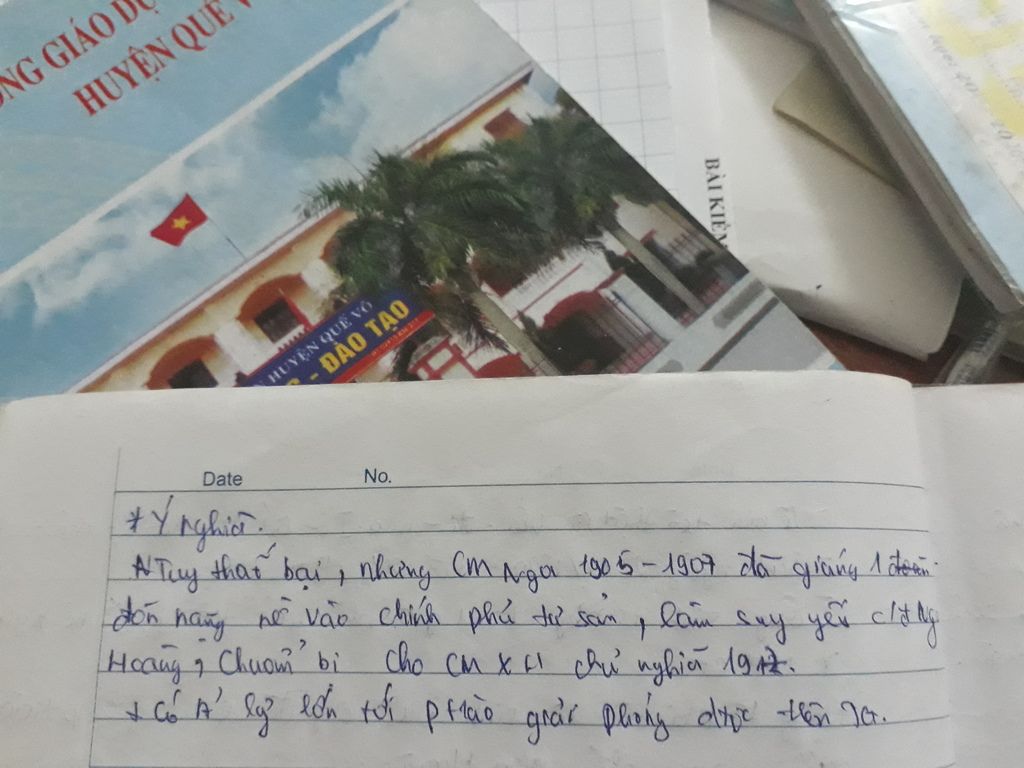 NG GIÁO DỤ
HUYỆN QUẾ V
HUYỆN QUẾ VÕ
- ĐÀO TẠO
BÀI KIỂM
Date No.
* Ý nghĩa.
Tuy thất bại, nhưng CM Nga 1905-1907 đã giáng 1
đòn nặng nề vào chính phủ tư sản, làm suy yếu c/đ Ng
Hoàng, Chuẩn bị cho CM XH chủ nghĩa 1917.
+ Có lớn tới ptrào giải phóng trên TG.